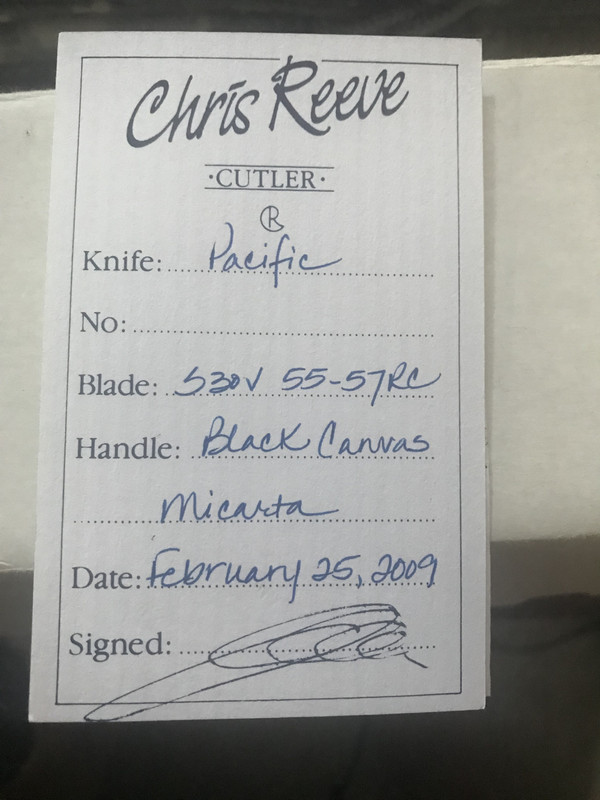 Chris Reeve
·CUTLER·
R
Knife: Pacific
No:
Blade: S30V 55-57RC
Handle: Black Canvas
Micarta
Date: February 25, 2009
Signed: